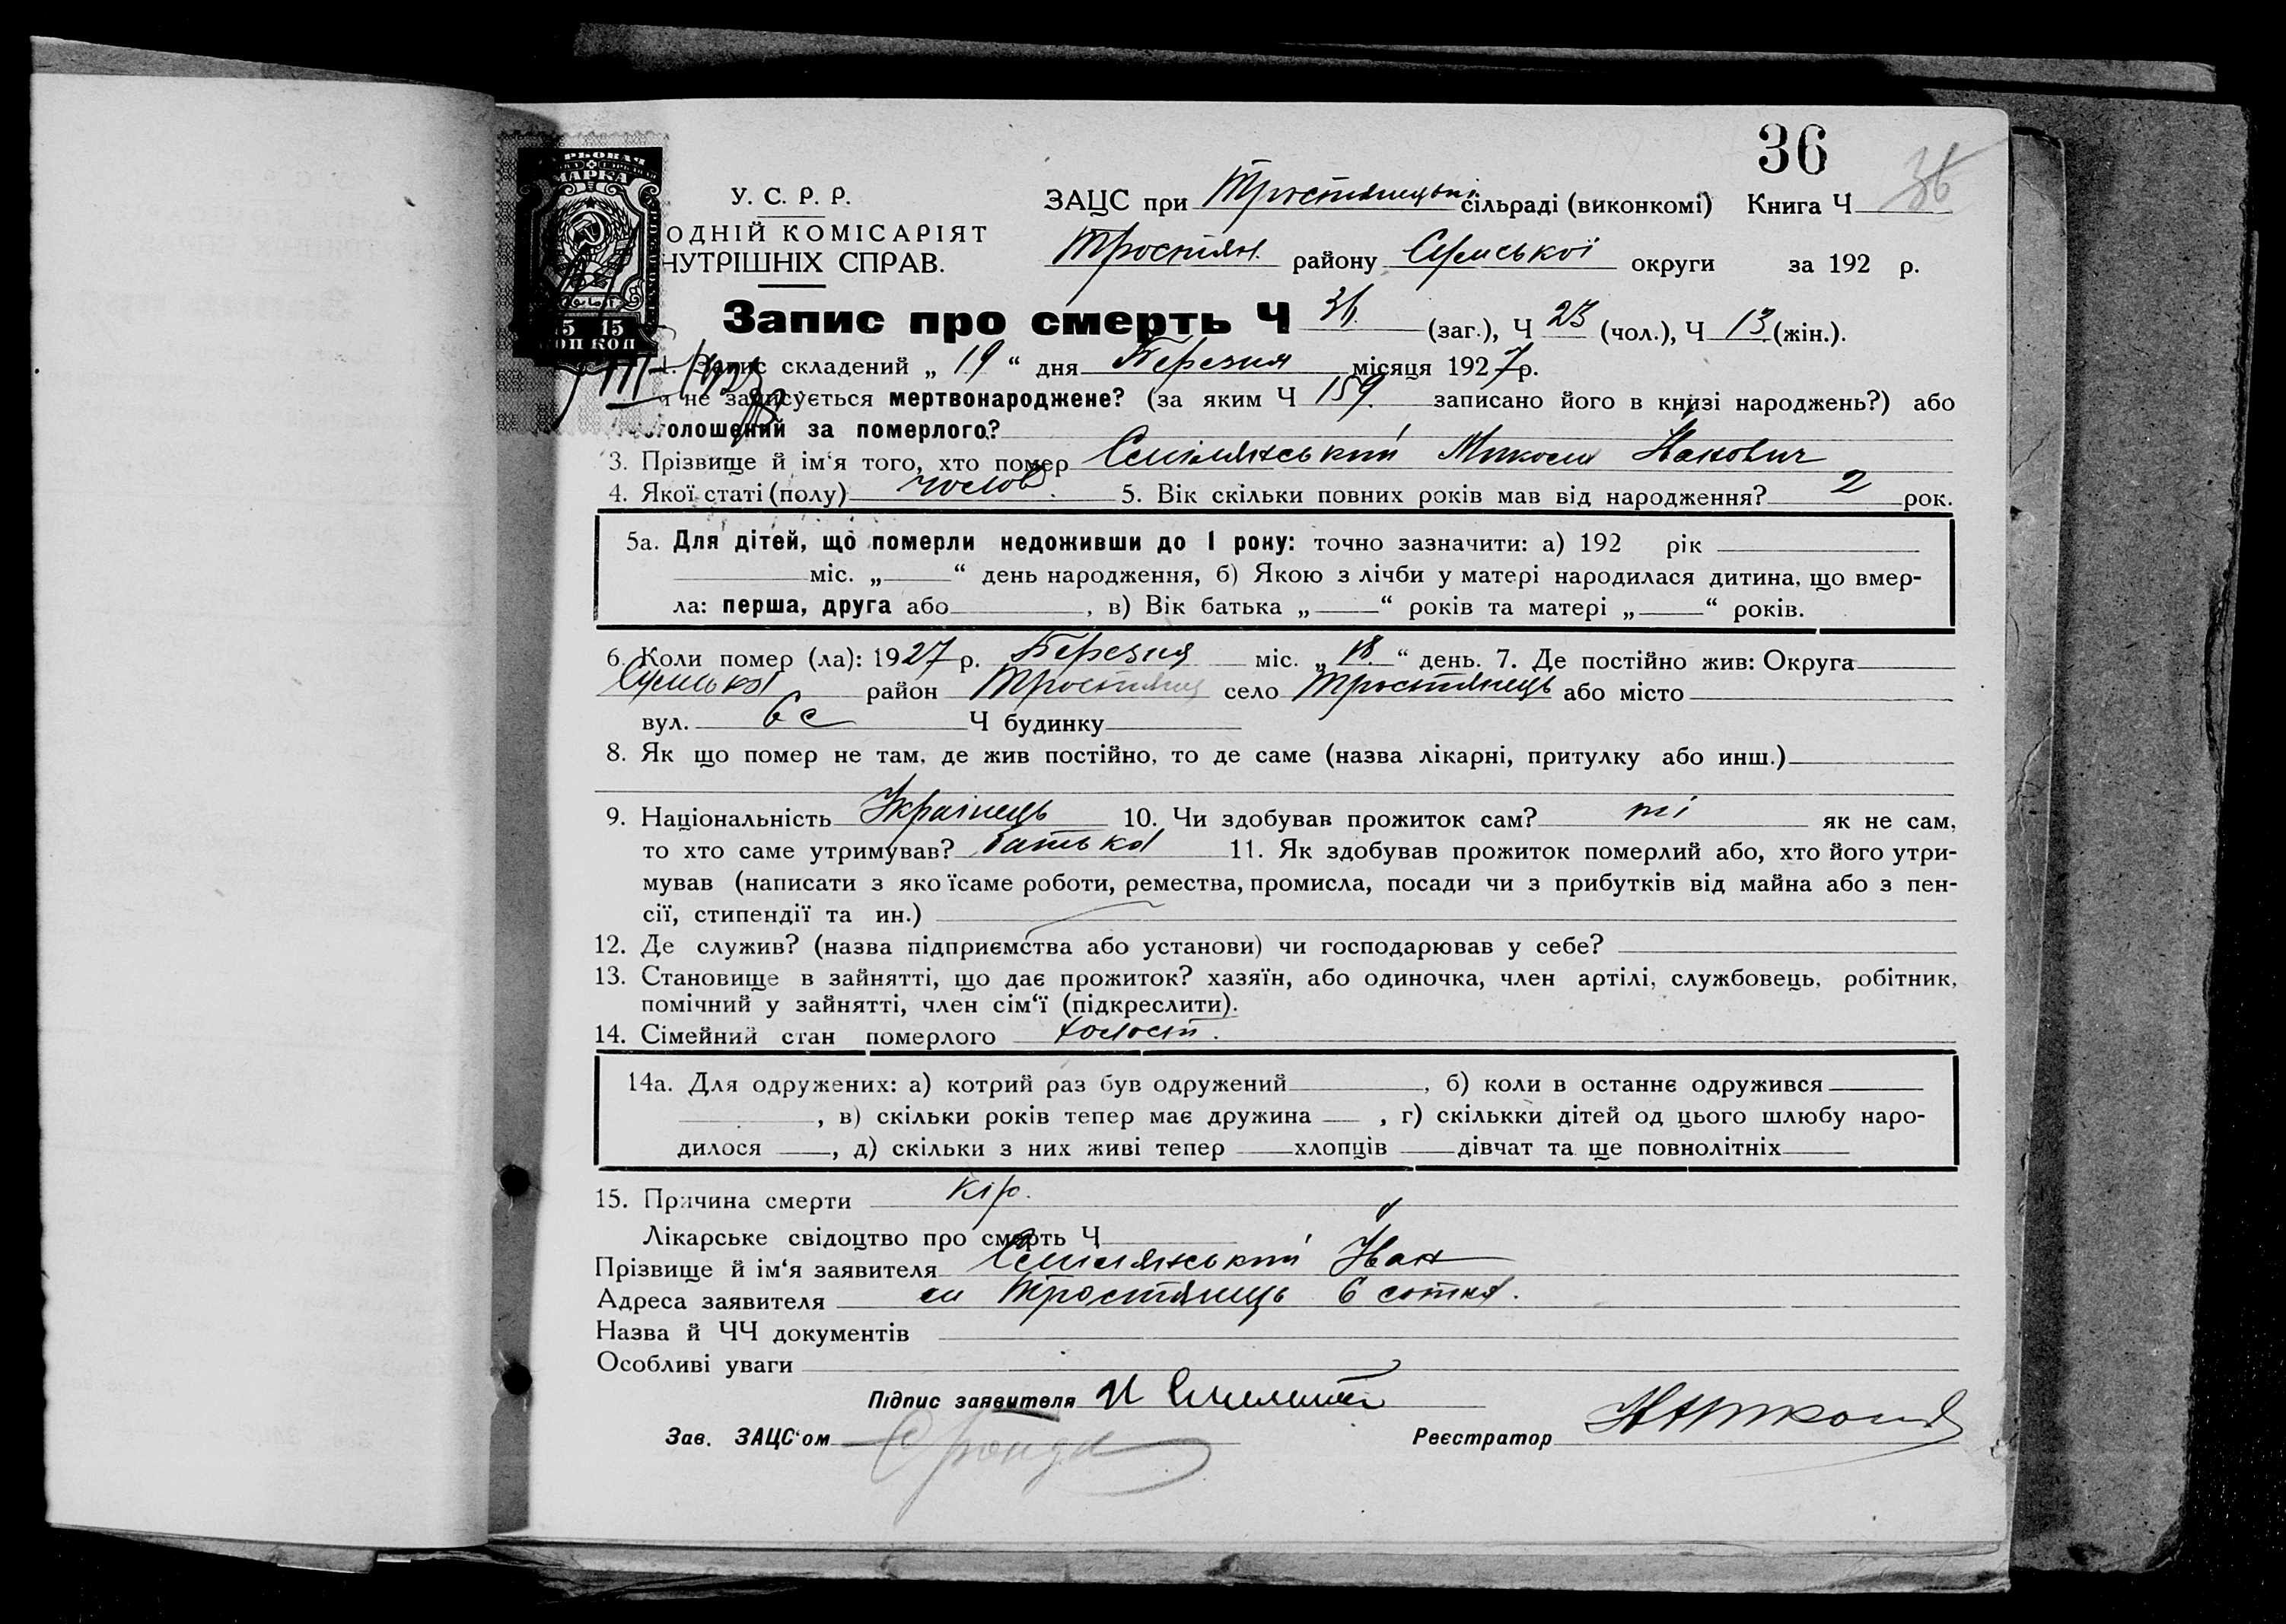 36
36
У. С. Р. Р.
ОДНІЙ КОМІСАРІЯТ
НУТРІШНІХ СПРАВ.
МАРКА
15 15
КОП КОП
ЗАЦС при Тростянецькі сільраді (виконкомі) Книга Ч
Тростян. району Сумської округи за 192 р.
Запис про смерть Ч 36. (заг.), Ч 23 (чол.), Ч 13 (жін.).
1. Запис складений „ 19 “ дня Березня місяця 1927 р.
не записується мертвонароджене? (за яким Ч 159. записано його в книзі народжень?) або
оголошений за померлого?
3. Прізвище й ім‘я того, хто помер Смілянський Микола Іванович
4. Якої статі (полу) чолов. 5. Вік скільки повних років мав від народження? 2 рок.
5а. Для дітей, що померли недоживши до 1 року: точно зазначити: а) 192 рік
міс. „ “ день народження, б) Якою з лічби у матері народилася дитина, що вмер-
ла: перша, друга або , в) Вік батька „ “ років та матері „ “ років.
6. Коли помер (ла): 1927 р. Березня міс. „ 18. “ день. 7. Де постійно жив: Округа
Сумська район Тростянец село Тростянець або місто
вул. 6 с Ч будинку
8. Як що помер не там, де жив постійно, то де саме (назва лікарні, притулку або инш.)
9. Національність Українець 10. Чи здобував прожиток сам? ні як не сам,
то хто саме утримував? батько 11. Як здобував прожиток померлий або, хто його утри-
мував (написати з якоїсаме роботи, ремества, промисла, посади чи з прибутків від майна або з пен-
сії, стипендії та ин.)
12. Де служив? (назва підприємства або установи) чи господарював у себе?
13. Становище в зайнятті, що дає прожиток? хазяїн, або одиночка, член артілі, службовець, робітник,
помічний у зайнятті, член сім‘ї (підкреслити).
14. Сімейний стан померлого холост.
14а. Для одружених: а) котрий раз був одружений , б) коли в останнє одружився
, в) скільки років тепер має дружина , г) скількки дітей од цього шлюбу наро-
дилося , д) скільки з них живі тепер хлопців дівчат та ще повнолітніх
15. Причина смерти кір.
Лікарське свідоцтво про смерть Ч
Прізвище й ім‘я заявителя Смілянський Іван
Адреса заявителя см Тростянець 6 сотня.
Назва й ЧЧ документів
Особливі уваги
Підпис заявителя И
Зав. ЗАЦС‘ом
Реєстратор